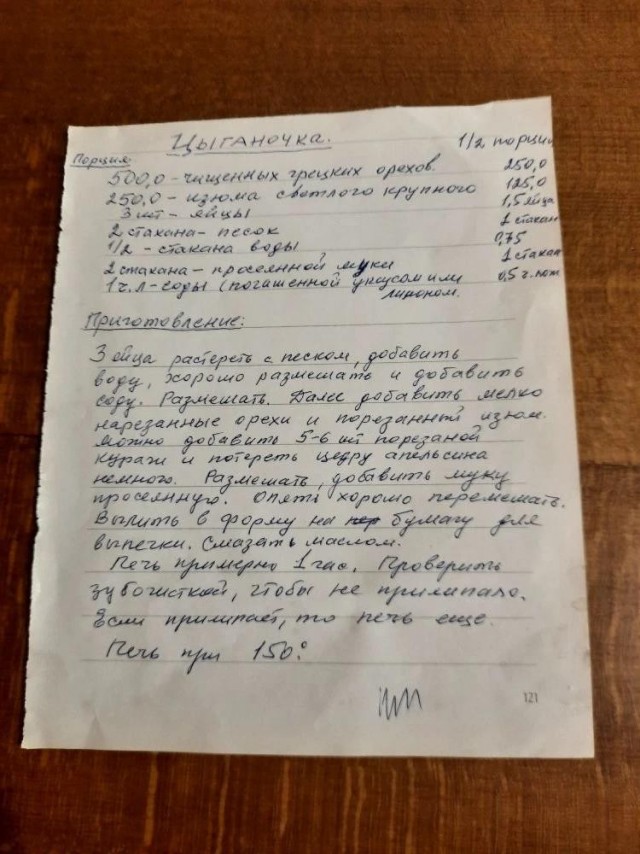 Цыганочка. 1/2 порции
Порция:
500,0 - чищенных грецких орехов. 250,0
250,0 - изюма светлого крупного 125,0
3 шт - яйцы 1,5 яйца
2 стакана - песок 1 стакан
1/2 - стакана воды 0,75
2 стакана - просеянной муки 1 стакан
1 ч.л - соды (погашенной уксусом или 0,5 ч. лож
лимоном.
Приготовление:
3 яйца растереть с песком, добавить
воду, хорошо размешать и добавить
соду. Размешать. Далее добавить мелко
нарезанные орехи и порезанный изюм.
можно добавить 5-6 шт порезаной
кураги и потереть цедру апельсина
немного. Размешать, добавить муку
просеянную. Опять хорошо перемешать.
Вылить в форму на бумагу для
выпечки. Смазать маслом.
Печь примерно 1 час. Проверить
зубочисткой, чтобы не прилипало.
Если прилипает, то печь еще.
Печь при 150°.
121